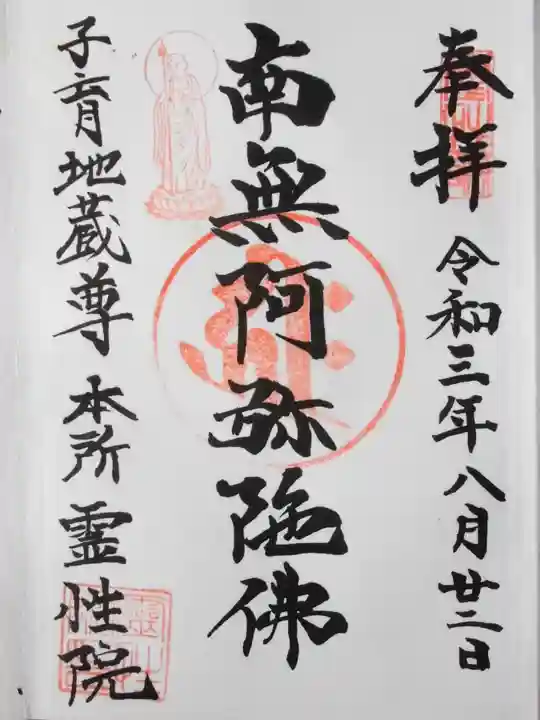 奉拝 令和三年八月廿二日
南無阿弥陁佛
子育地蔵尊 本所 霊性院